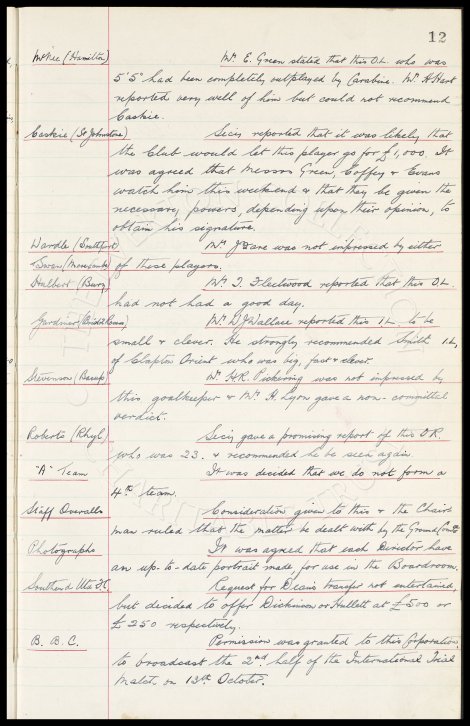 12
McNee (Hamilton) Mr. E. Green stated that this O.L. who was
5'5" had been completely outplayed by Carabine. Mr. H Hart
reported very well of him but could not recommend
Caskie.
Caskie (St Johnstone) Secy reported that it was likely that
the Club would let this player go for £1,000. It
was agreed that Messrs Green, Coffey & Evans
watch him this weekend & that they be given the
necessary powers, depending upon their opinion, to
obtain his signature.
Wardle (Southport) Mr J Fare was not impressed by either
& Swan (Newcastle) of these players.
Hulbert (Bury) Mr. T. Fleetwood reported that this O.L.
had not had a good day.
Gardiner Mr. W J Wallace reported this I.L. to be
small & clever. He strongly recommended Smith I.L.
of Clapton Orient who was big, fast & clever.
Stevenson (Bacup) Mr. H R. Pickering was not impressed by
this goalkeeper & Mr. A. Lyon gave a non-committal
verdict.
Roberts (Rhyl) Secy gave a promising report of this O.R.
who was 23. & recommended he be seen again.
"A" Team It was decided that we do not form a
4th team.
Staff Overalls Consideration given to this & the Chair-
man ruled that the matter be dealt with by the Ground Comtee
Photographs It was agreed that each Director have
an up-to-date portrait made, for use in the Boardroom.
Southend Utd F.C Request for Dean's transfer not entertained,
but decided to offer Dickinson or Hullett at £500 or
£250 respectively.
B. B. C. Permission was granted to this Corporation
to broadcast the 2nd half of the International Trial
Match on 13th October.